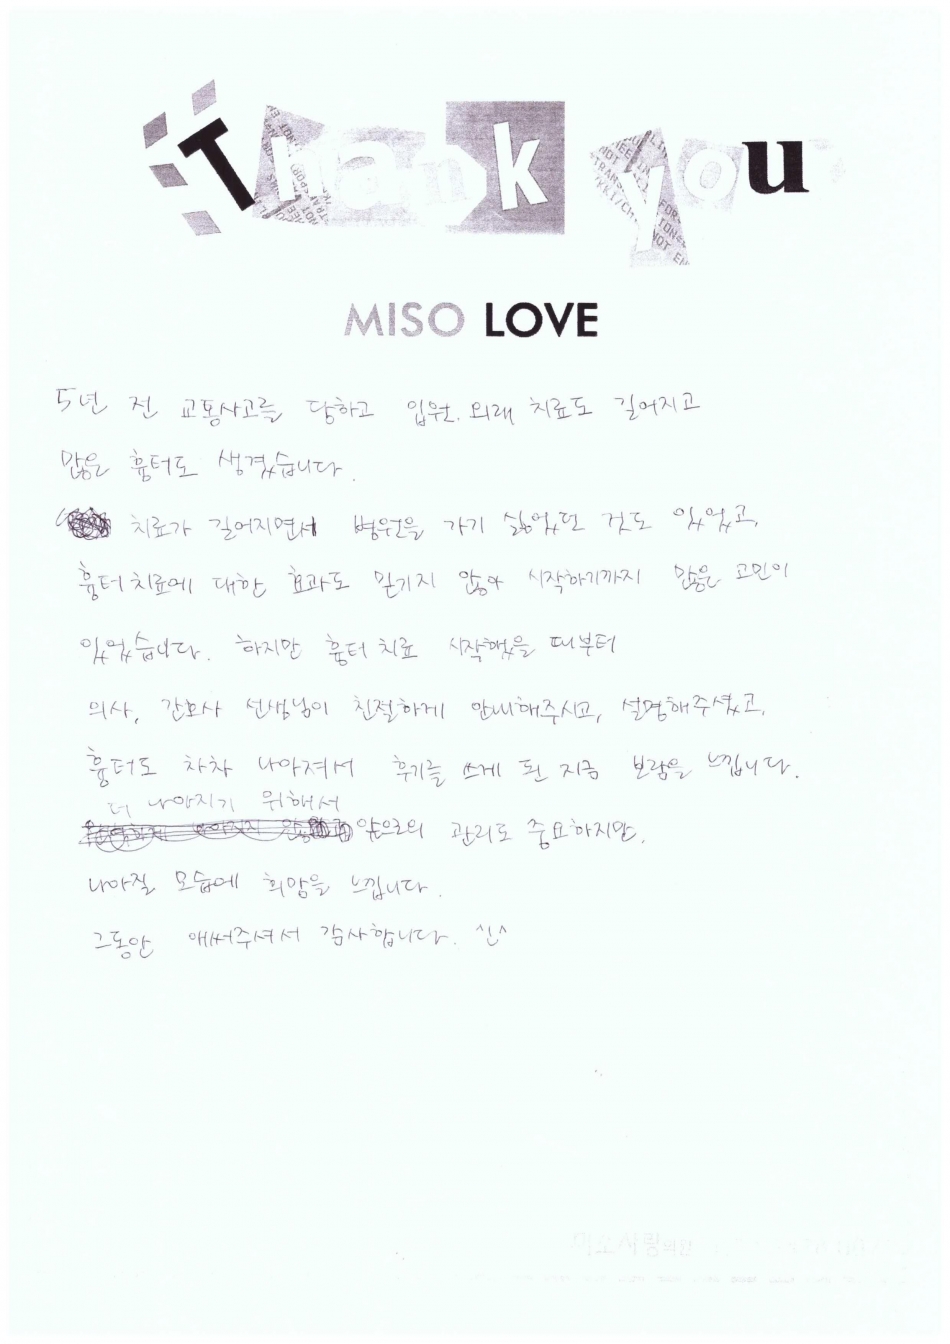 Thank you
MISO LOVE
5년 전 교통사고를 당하고 입원. 외래 치료도 길어지고
많은 흉터도 생겼습니다.
치료가 길어지면서 병원을 가기 싫었던 것도 있었고,
흉터치료에 대한 효과도 믿기지 않아 시작하기까지 많은 고민이
있었습니다. 하지만 흉터 치료 시작했을 때부터
의사, 간호사 선생님이 친절하게 안내해주시고, 설명해주셨고,
흉터도 차차 나아져서 후기를 쓰게 된 지금 보람을 느낍니다.
더 나아지기 위해서
앞으로의 관리도 중요하지만,
나아질 모습에 희망을 느낍니다.
그동안 애써주셔서 감사합니다. ^신^
미소사랑의원